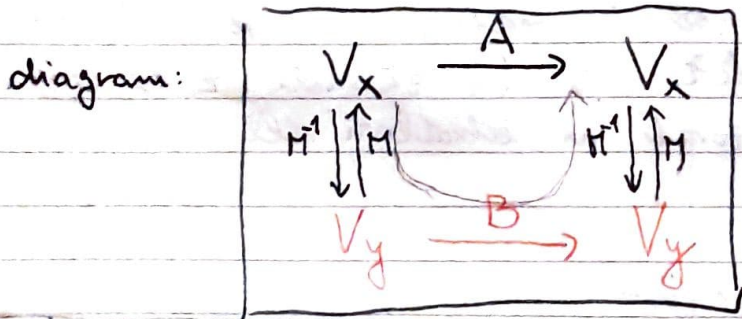 A
diagram: Vx Vx
M⁻¹ M M⁻¹ M
B
Vy Vy